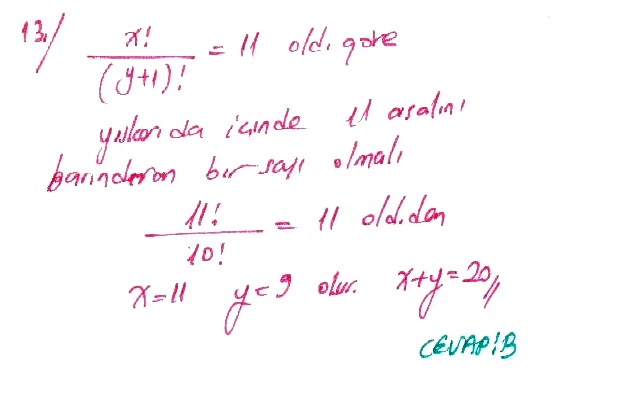 13./ x! / (y+1)! = 11 old. göre
yukarıda içinde 11 asalını
barındıran bir sayı olmalı
11! / 10! = 11 old.dan
x=11 y=9 olur. x+y=20//
CEVAP:B